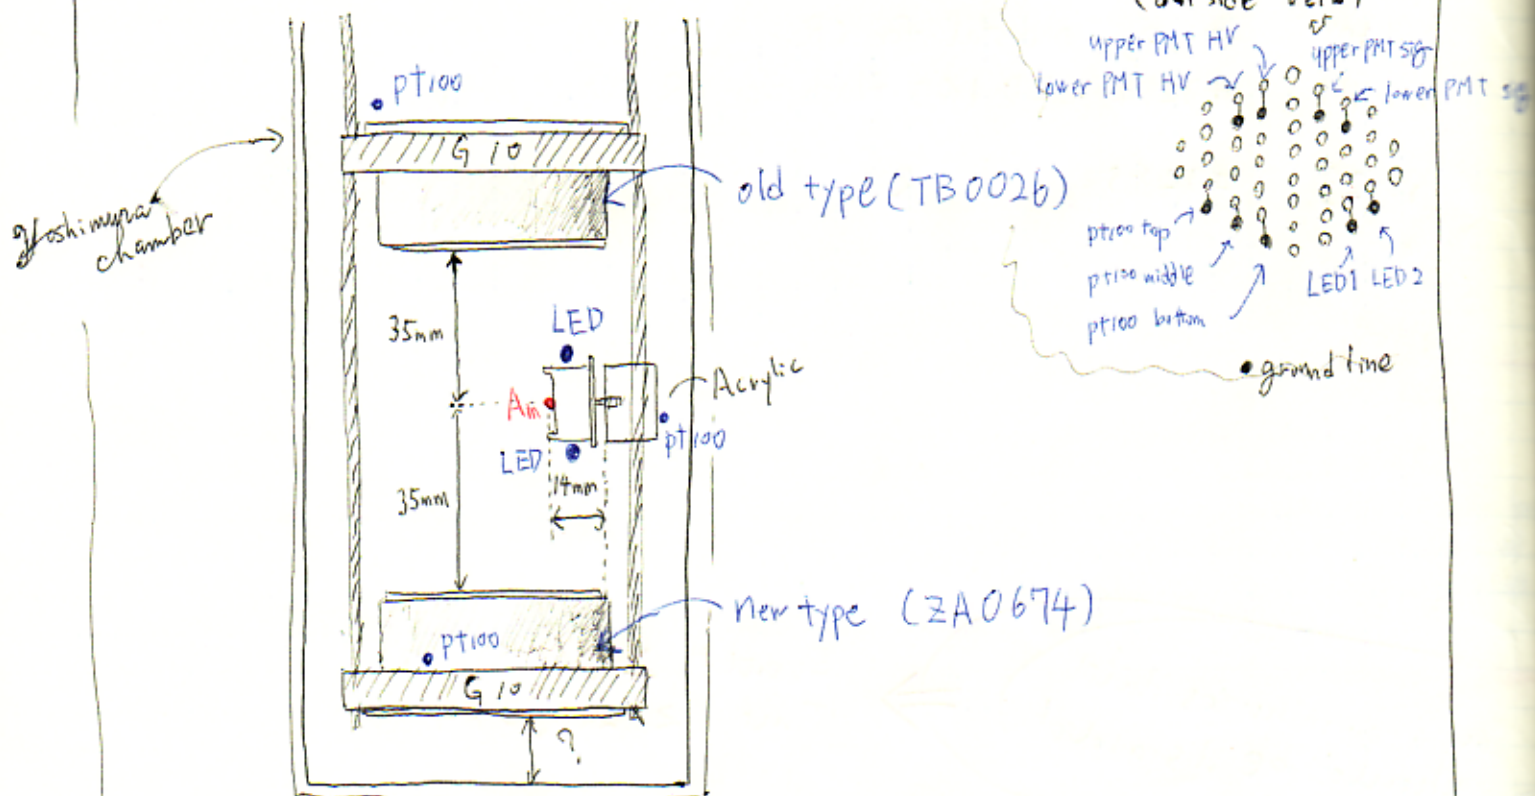 pt100
G 10
old type (TB0026)
Yoshimura
chamber
35mm
LED
Am
Acrylic
pt100
LED
14mm
35mm
new type (ZA0674)
pt100
G 10
?
upper PMT HV
upper PMT sig
lower PMT HV
lower PMT sig
pt100 top
pt100 middle
pt100 bottom
LED1 LED2
ground line